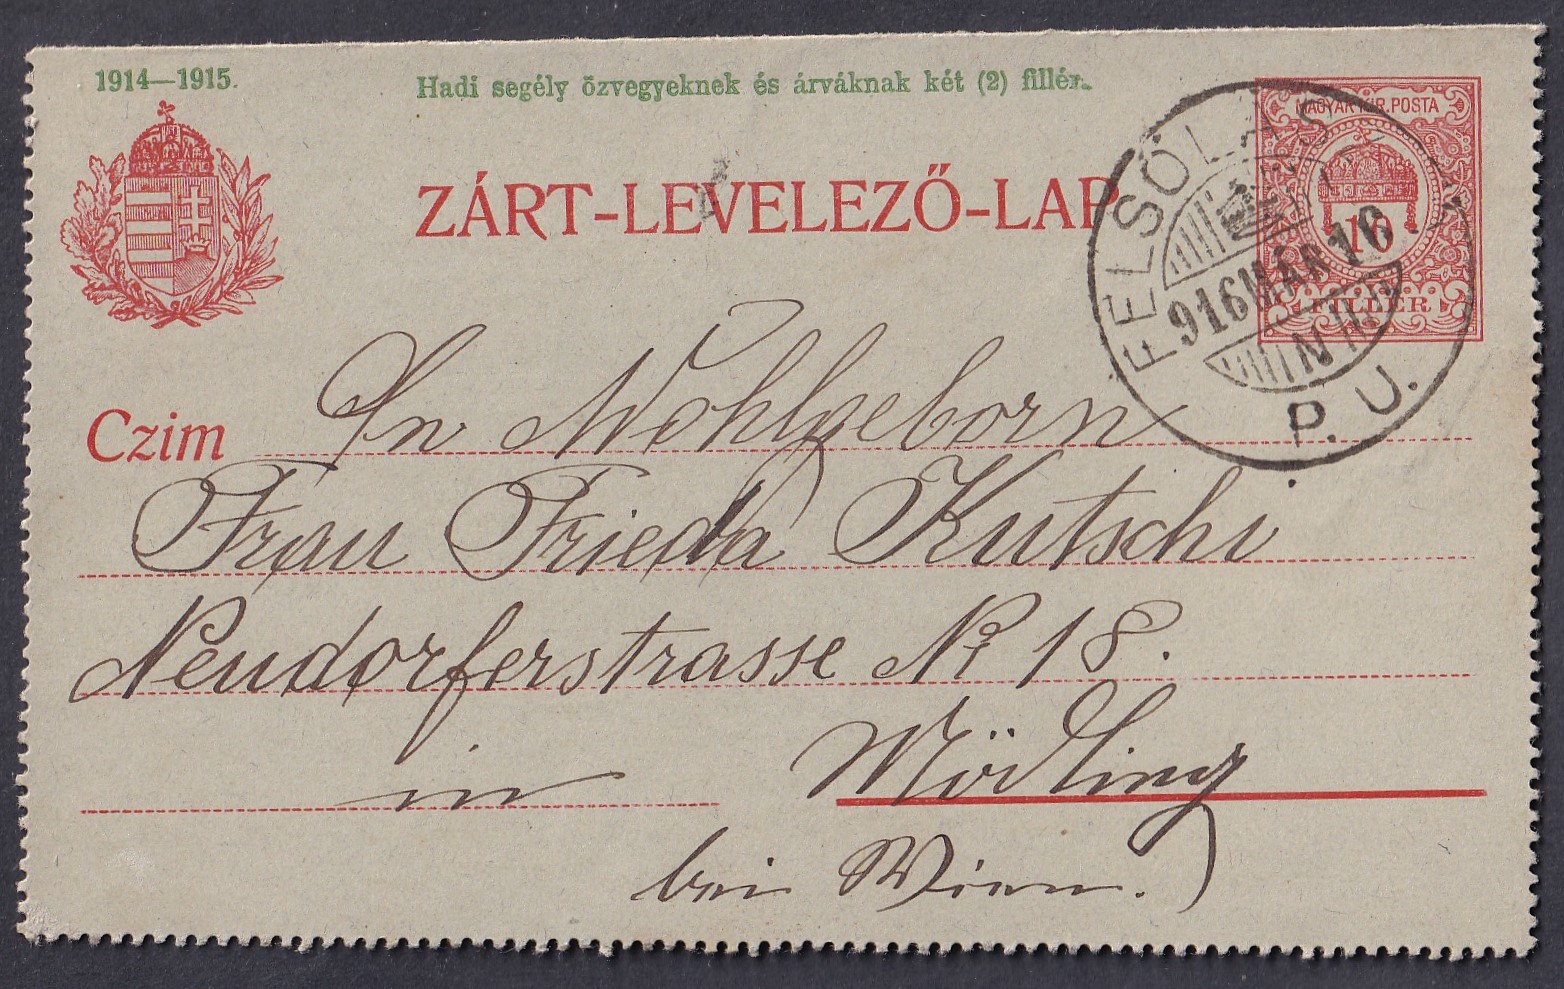 1914—1915.
Hadi segély özvegyeknek és árváknak két (2) fillér.
MAGYAR KIR. POSTA
ZÁRT-LEVELEZŐ-LAP
10
FILLÉR
916 MÁR 10
N
P. U.
Czim
An Wohlgeborn
Frau Frieda Kutschi
Neudorferstrasse No 18.
in Mödling
bei Wien.